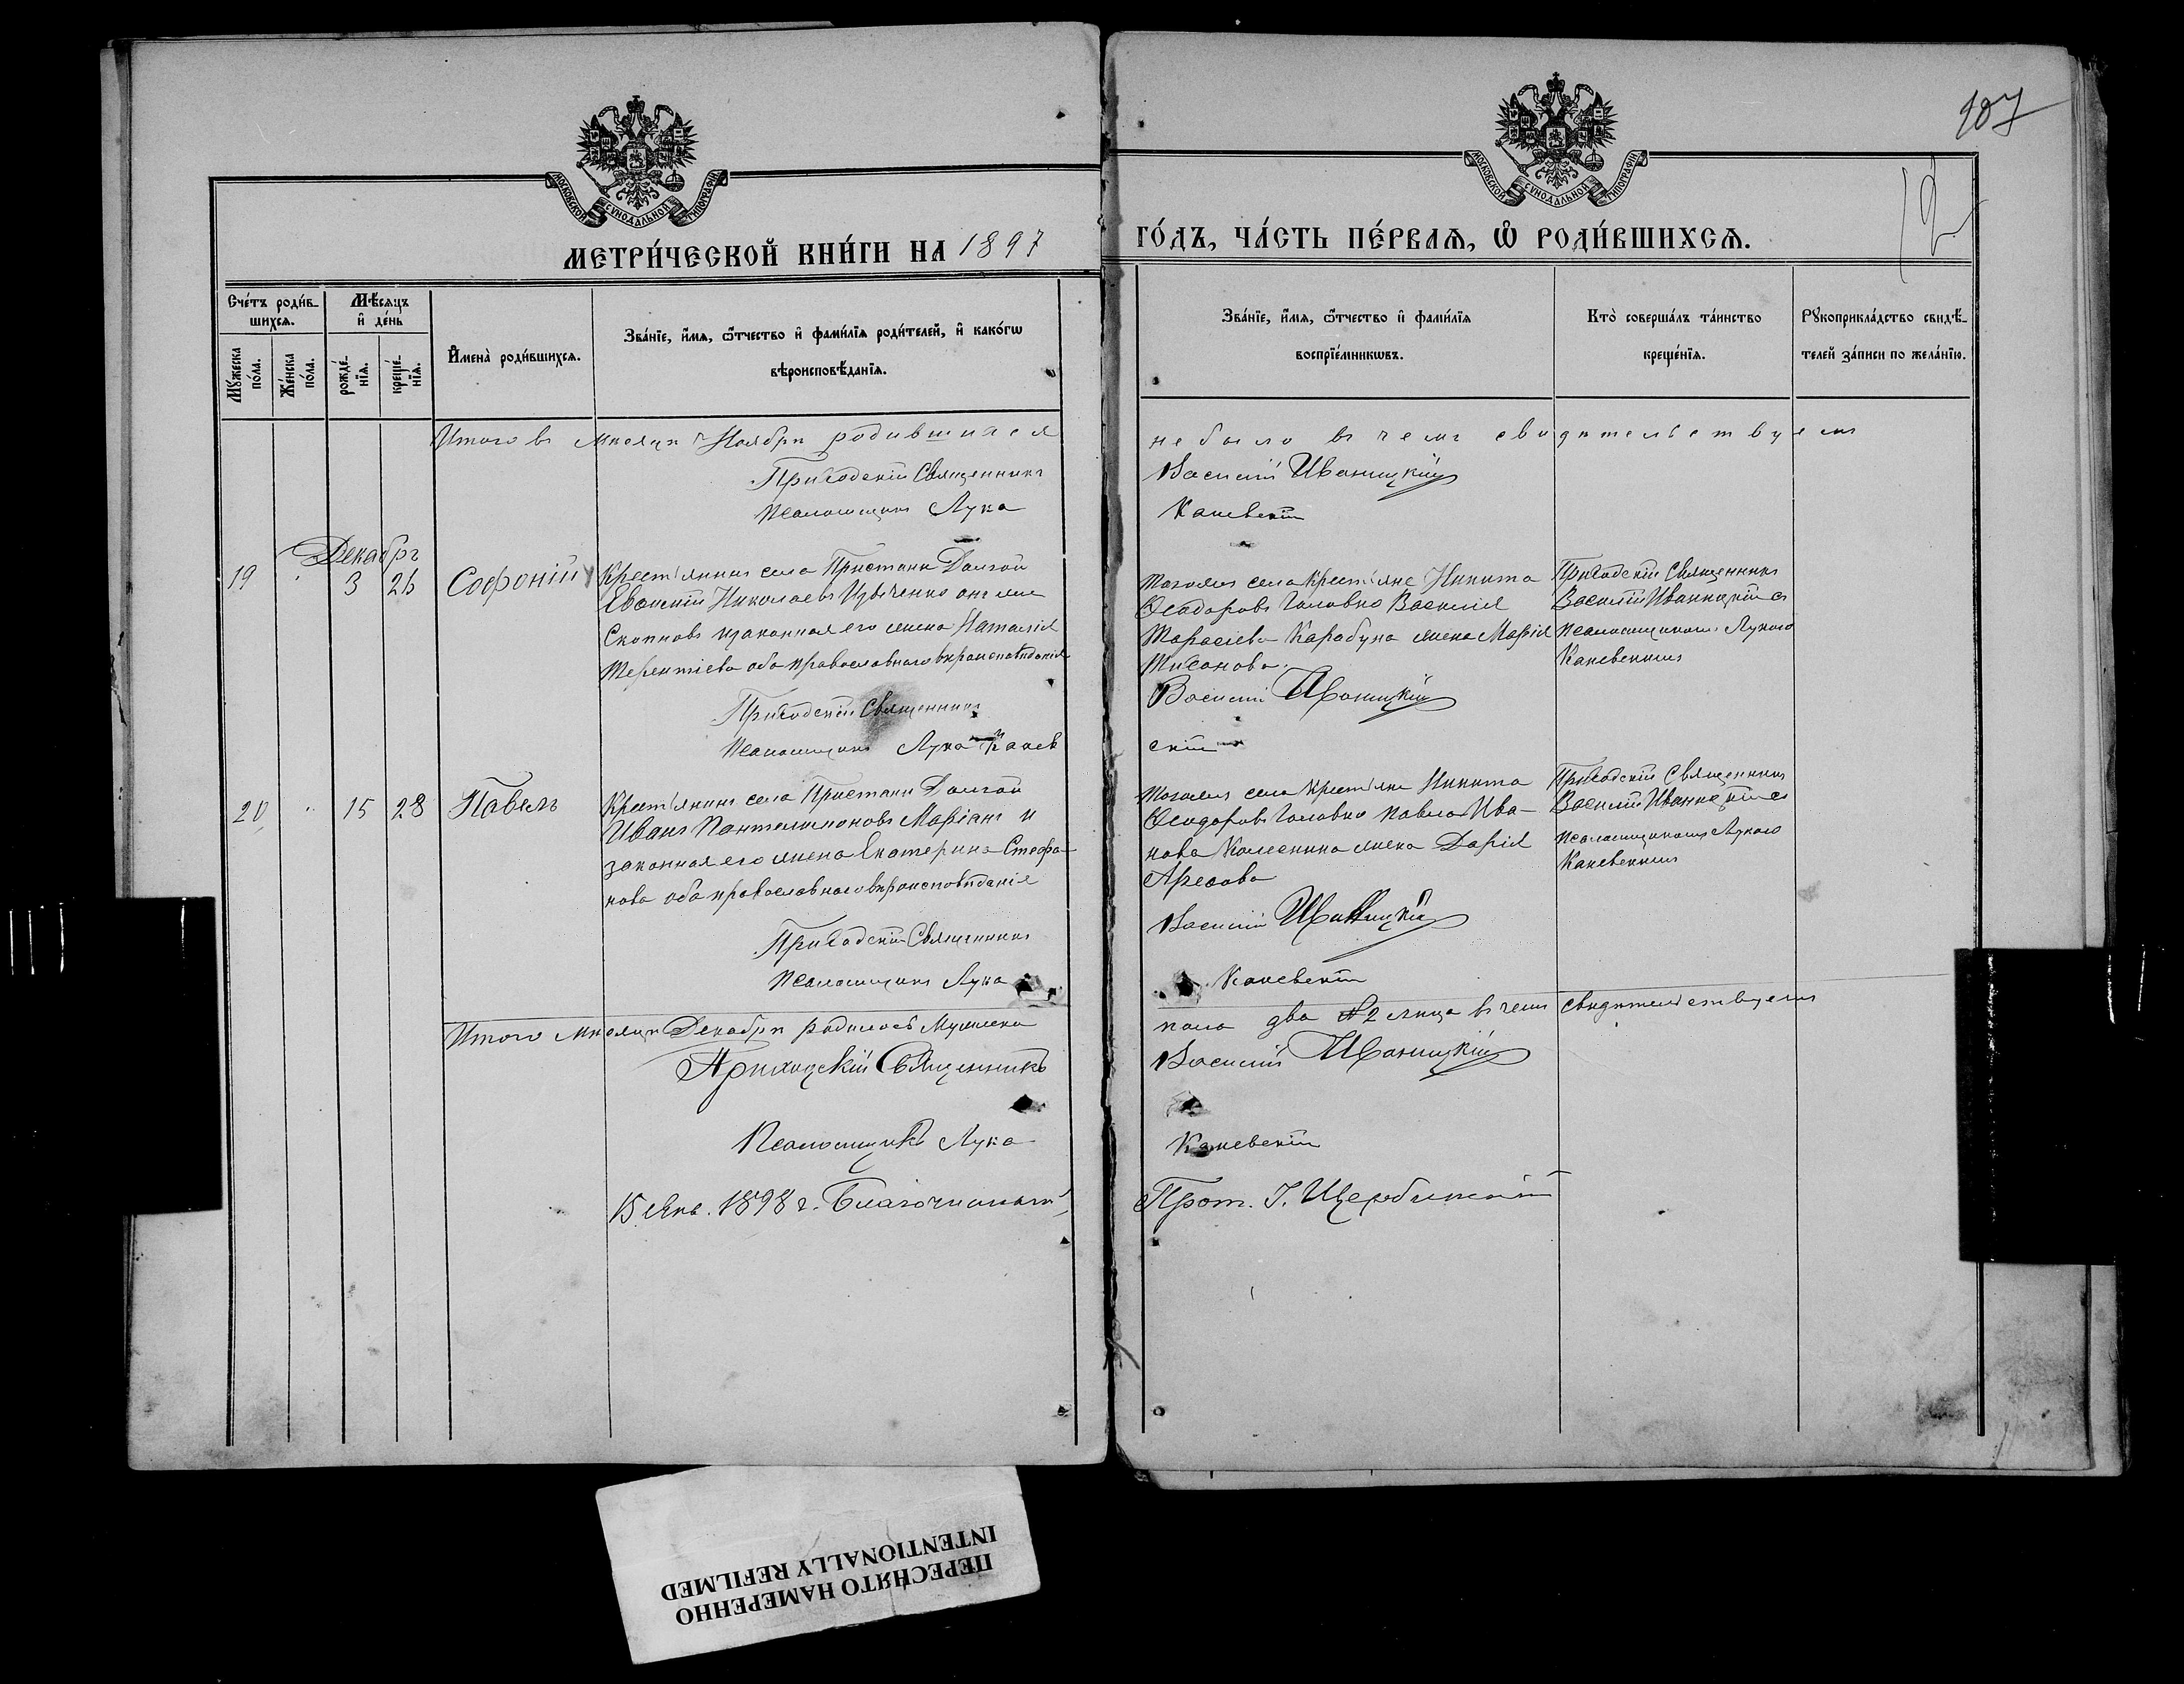 107
12
МОСКОВСКОЙ СУНОДАЛЬНОЙ ТИПОГРАФІИ
МОСКОВСКОЙ СУНОДАЛЬНОЙ ТИПОГРАФІИ
МЕТРИ́ЧЕСКОЙ КНИ́ГИ НА 1897
ГО́ДЪ, ЧА́СТЬ ПЕ́РВАѦ, Ѡ҆ РОДИ́ВШИХСѦ.
Сче́тъ роди́в-
шихсѧ.
Мѣ́сѧцъ
и҆ де́нь
Мꙋ́жеска
по́ла.
Же́нска
по́ла.
рожде́-
нїѧ.
креще́-
нїѧ.
И҆мена̀ роди́вшихсѧ.
Зва́нїе, и҆́мѧ, ѻ҆́тчество и҆ фами́лїѧ роди́телей, и҆ како́гѡ
вѣроисповѣ́данїѧ.
Зва́нїе, и҆́мѧ, ѻ҆́тчество и҆ фами́лїѧ
воспрїе́мникѡвъ.
Кто̀ соверша́лъ та́инство
креще́нїѧ.
Рꙋкоприкла́дство свидѣ́-
телей за́писи по жела́нїю.
Итого въ мѣсяцѣ Ноябрѣ родившихся
не было въ чемъ свидѣтельствуемъ
Приходскій Священникъ
Василій Иваницкій
Псаломщикъ Лука
Каневскій
Декабрь
19 " 3 26 Софоній
Крестьянинъ села Пристани Долгой
Николаевъ
законная его жена Наталія
Терентіева оба православнаго вѣроисповѣданія
тогожъ села крестьяне Никита
Ѳеодоровъ Головко Василія
Тарасіева Карабуна жена Марія
Тихонова.
Приходскій Священникъ
Василій Иваницкій съ
псаломщикомъ Лукою
Каневскимъ
Приходскій Священникъ
Василій Иваницкій
Псаломщикъ Лука Канев
скій
20 " 15 28 Павелъ
Крестьянинъ села Пристани Долгой
Иванъ Пантелимоновъ Маріанъ и
законная его жена Екатерина Стефа-
нова оба православнаго вѣроисповѣданія
тогожъ села крестьяне Никита
Ѳеодоровъ Головко Павла Ива-
нова Колесника жена Дарія
Приходскій Священникъ
Василій Иваницкій съ
псаломщикомъ Лукою
Каневскимъ
Приходскій Священникъ
Василій Иваницкій
Псаломщикъ Лука
Каневскій
Итого мѣсяцѣ Декабрѣ родилось Мужеска
пола два 2 лица въ чемъ свидѣтельствуемъ
Приходскій Священникъ
Василій Иваницкій
Псаломщикъ Лука
Каневскій
15 Янв. 1898 г. Благочинный,
Прот. І. Щербинскій
ПЕРЕСНЯТО НАМЕРЕННО
INTENTIONALLY REFILMED